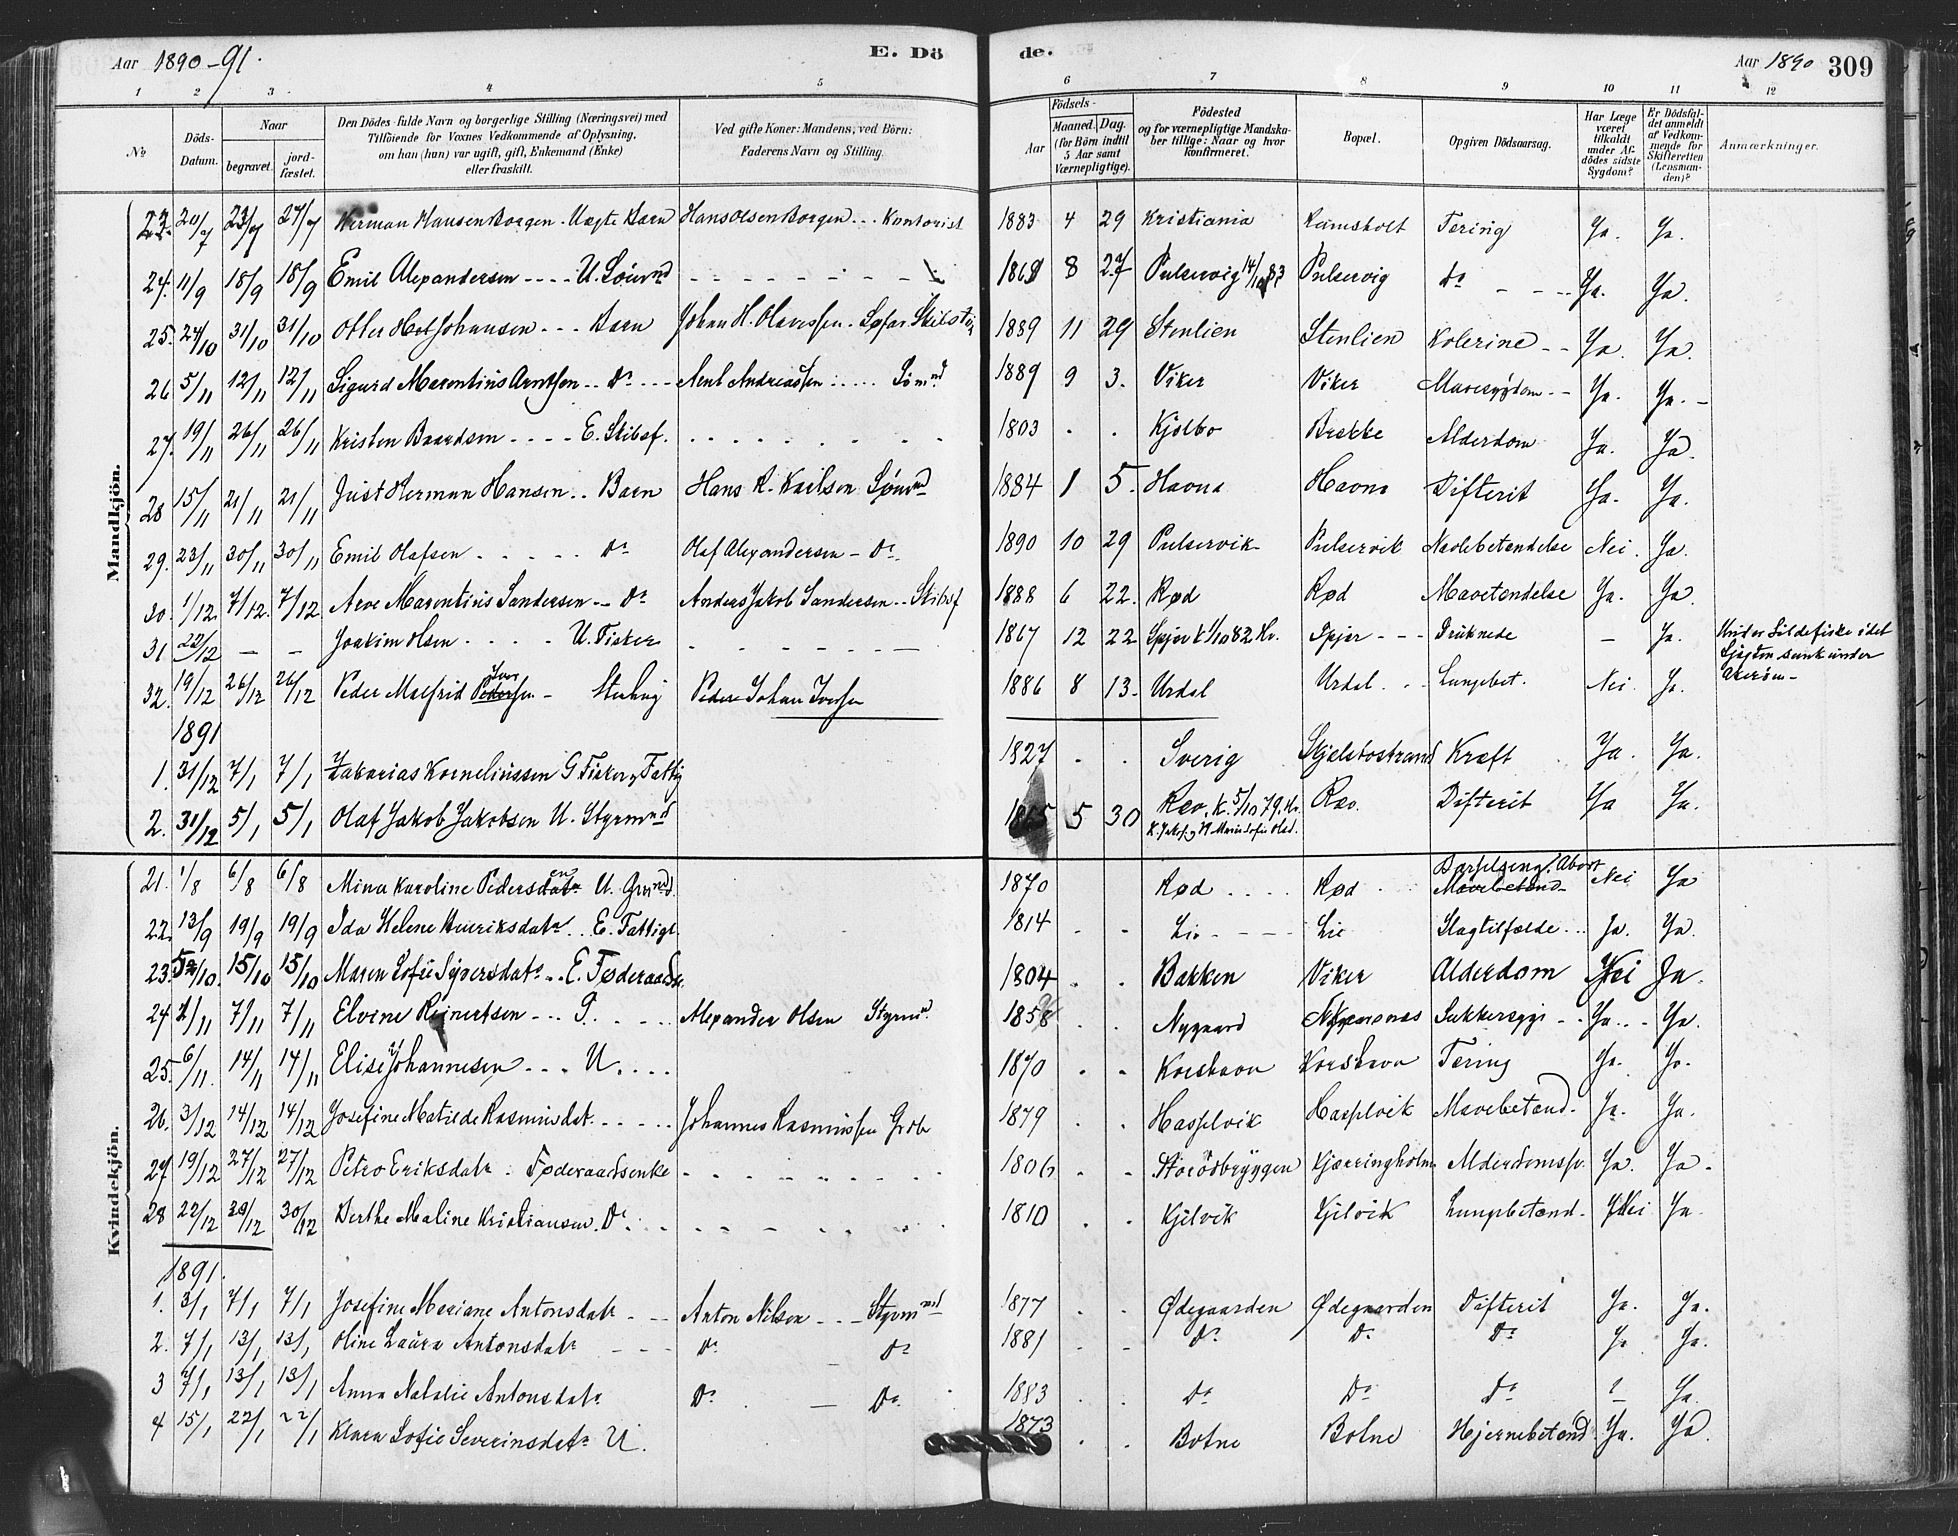 Aar 1890-91. E. Dö de. Aar 1890 309
1 2 3 4 5 6 7 8 9 10 11 12
No Döds-Datum. Naar begravet. jord-fæstet. Den Dödes fulde Navn og borgerlige Stilling (Næringsvei) med Tilföiende for Voxnes Vedkommende af Oplysning, om han (hun) var ugift, gift, Enkemand (Enke) eller fraskilt. Ved gifte Koner: Mandens, ved Börn: Faderens Navn og Stilling. Födsels- Aar Maaned. Dag. (for Börn indtil 5 Aar samt Værnepligtige). Födested og for værnepligtige Mandska-ber tillige: Naar og hvor konfirmeret. Bopæl. Opgiven Dödsaarsag. Har Læge været tilkaldt under Af-dödes sidste Sygdom? Er Dödsfal-det anmeldt af Vedkom-mende for Skifteretten (Lensman-den)? Anmærkninger.
Mandkjön.
23. 20/7 23/7 27/7 Herman Hansen Borgen. Uægte Barn Hans Olsen Borgen... Kontorist 1883 4 29 Kristiania Ramsholt Tering Ja. Ja.
24. 11/9 18/9 18/9 Emil Alexandersen .... U. Sömnd 8 27 Pulservig 14/10 83 Pulservig do Ja. Ja.
25. 24/10 31/10 31/10 Otter Johansen ... Barn Johan H. Olavessen. 1889 11 29 Stenlien Stenlien Kolerine Ja. Ja.
26 5/11 12/11 12/11 Sigurd Marentius Arntsen .. Do ... Arnt Andreassen .... Sömnd 1889 9 3. Viker Viker Mavesygdom Ja. Ja.
27. 19/11 26/11 26/11 Kristen Baardsen .... E. Skibsf. 1803 Kjölbo Brekke Alderdom Ja. Ja.
28 15/11 21/11 21/11 Just Herman Hansen.. Barn Hans R. Karlsen Sömnd 1884 1 5. Havna Havna Difterit Ja. Ja.
29. 23/11 30/11 30/11 Emil Olafsen Do Olaf Alexandersen - Do. 1890 10 29 Pulservik Pulservik Navlebetændelse Nei. Ja.
30. 1/12 7/12 7/12 Arve Marentius Sandersen .. Do Anders Jakob Sandersen .. Skibsf 1888 6 22. Rød Rød Mavetændelse Ja. Ja.
31 22/12 - - Joakim Olsen U. Fisker 1867 12 22 Spjær k 1/10 82 Hv. Spjær --- Druknede - Ja. Under Sildefiske idet
Sjøgten sank under
Akerøen-
32. 19/12 26/12 26/12 Peder Malfrid Pedersen Ivar - Peder Johan Iversen 1886 8 13. Urdal Urdal. Lungebet. Nei. Ja.
1891
1. 31/12 7/1 7/1 Zakarias Korneliussen G Fisker, Fattig 1827 Sverig Skjelsbostrand Kræft Ja. Ja.
2. 31/12 5/1 5/1 Olaf Jakob Jakobsen U. Styrmnd 5 30 Røv, K. 5/10 79. Hv. Røv. Difterit Ja Ja.
Kvindekjön.
21. 1/8 6/8 6/8 Mina Karoline Pedersdatr en U. Grmnd. 1870 Rød .... Rød Barselseng. Abort Mavebetænd Nei Ja
22. 13/9 19/9 19/9 Ida Helene Henriksdatr .. E. Fattigl. 1814 Lie Lie Slagtilfælde... Ja. Ja.
23. 5/10. 15/10 15/10 Maren Sofie Syversdatr.. E. Føderaads. 1804 Bakken Viker Alderdom Nei Ja.
24. 2/11 7/11 7/11 Elvine Reinertsen --- G. Alexander Olsen Styrmd. 1858 Nygaard Sukkersyge Ja. Ja.
25. 6/11. 14/11 14/11 Elise Johannesen ... U. 1870 Korshavn Korshavn Tering Ja. Ja.
26. 3/12 14/12 14/12 Josefine Matilde Rasmusdat. Johannes Rasmussen Grdb 1879 Hasselvik Hasselvik Mavebetænd. Ja. Ja.
27 19/12 27/12 27/12 Petro Eriksdatr. Føderaadsenke 1806 Storödbryggen Kjærringholm Alderdomssv. Ja. Ja.
28 22/12 29/12 30/12 Berthe Maline Kristiansen. Do. 1810 Kjilvik Kjilvik Lungebetænd. Nei Ja.
1891.
1. 3/1 7/1 7/1 Josefine Mariane Antonsdatr Anton Nilsen --- Styrmnd 1877 Ødegaarden Ødegaarden Difterit Ja. Ja.
2. 7/1 13/1 13/1 Oline Laura Antonsdatr Do Do 1881 Do Do. Do Ja Ja.
3 7/1 13/1 13/1 Anna Natalie Antonsdatr Do Do. 1883 Do Do Do ? Ja.
4 15/1 22/1 22/1 Klara Sofie Severinsdatr U. 1873 Botne Botne Hjernebetænd Ja. Ja.